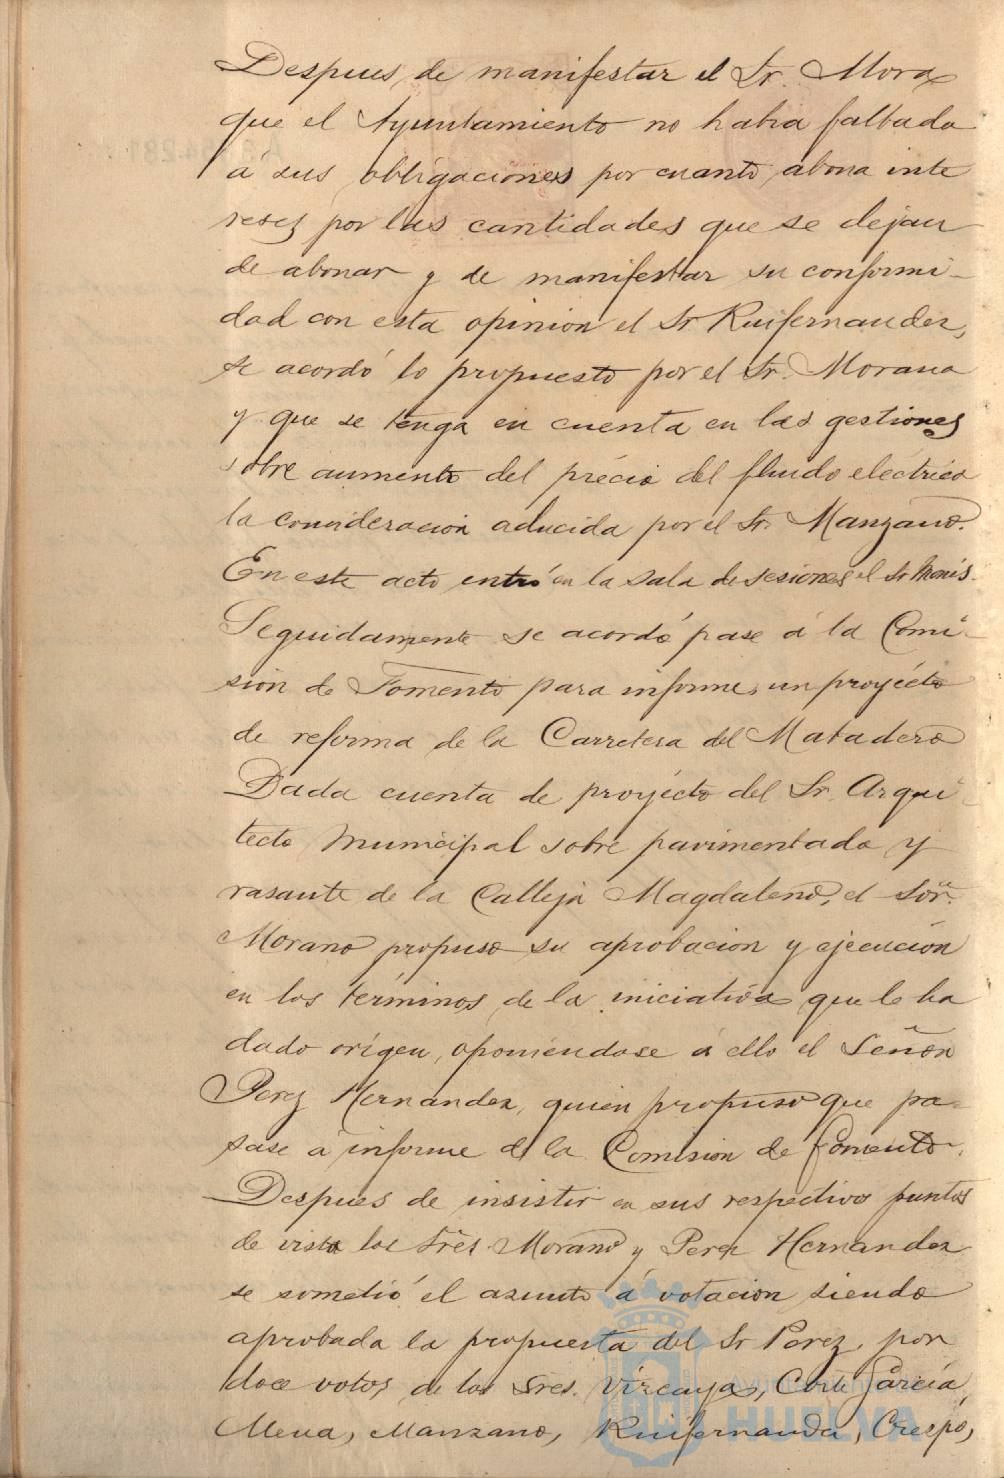 Despues de manifestar el Sr. Mora
que el Ayuntamiento no habia faltado
á sus obligaciones por cuanto abona inte
reses por las cantidades que se dejan
de abonar y de manifestar su conformi-
dad con esta opinion el Sr Ruifernandez,
se acordó lo propuesto por el Sr. Morano
y que se tenga en cuenta en las gestiones
sobre aumento del précio del fluido eléctrico
la consideracion aducida por el Sr. Manzano.
En este acto entró en la sala de sesiones el Sr Monis.
Seguidamente se acordó pase á la Comi-
sion de Fomento para informe, un proyécto
de reforma de la Carretera del Matadero
Dada cuenta de proyécto del Sr. Arqui-
tecto Municipal sobre pavimentado y
rasante de la Calleja Magdalena, el Sor.
Morano propuso su aprobacion y ejecucion
en los términos de la iniciativa que le ha
dado origen, oponiendose á ello el Señor
Perez Hernandez, quien propuso que pa-
sase á informe de la Comision de Fomento.
Despues de insistir en sus respectivos puntos
de vista los Sres. Morano y Perez Hernandez
se sometió el asunto á votacion siendo
aprobada la propuesta del Sr Perez, por
doce votos de los Sres. Vizcaya, Corte, Garcia,
Mena, Manzano, Ruifernandez, Crespo,
Ayuntamiento de
HUELVA